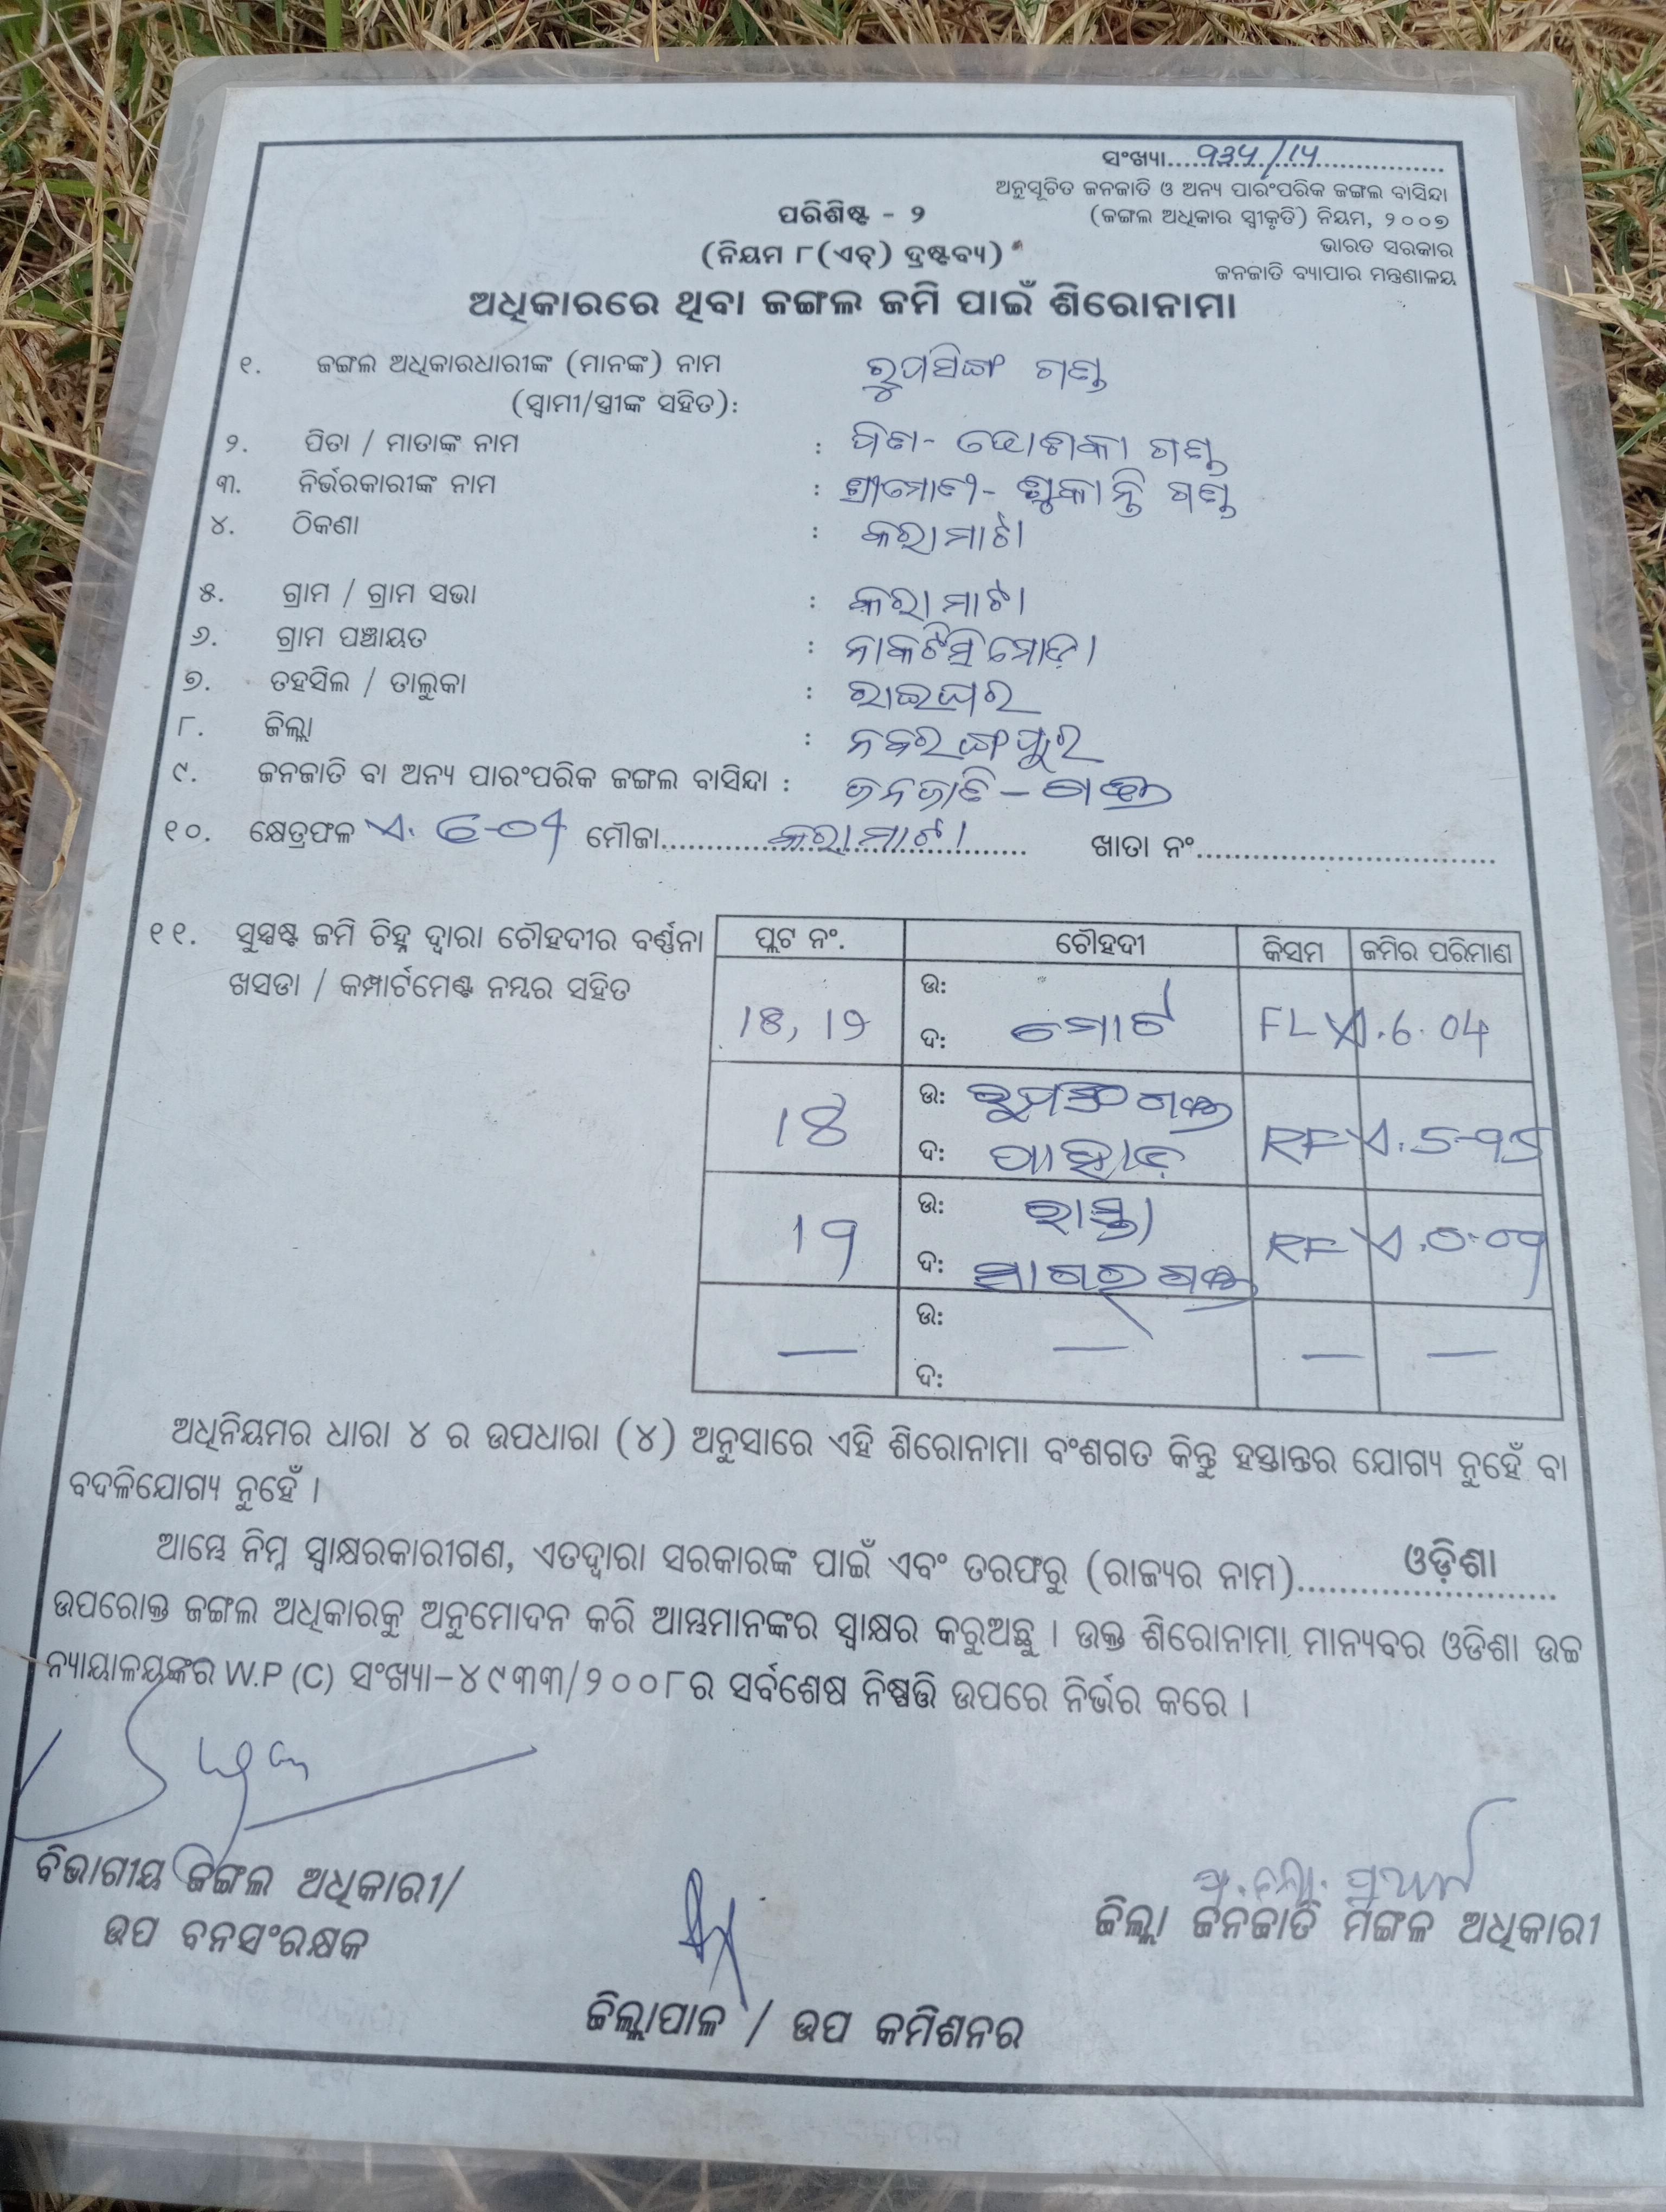 ସଂଖ୍ୟା..............................
ଅନୁସୂଚିତ ଜନଜାତି ଓ ଅନ୍ୟ ପାରଂପରିକ ଜଙ୍ଗଲ ବାସିନ୍ଦା
ପରିଶିଷ୍ଟ - ୨
(ଜଙ୍ଗଲ ଅଧିକାର ସ୍ୱୀକୃତି) ନିୟମ, ୨୦୦୭
(ନିୟମ ୮(ଏଚ୍) ଦ୍ରଷ୍ଟବ୍ୟ)
ଭାରତ ସରକାର
ଜନଜାତି ବ୍ୟାପାର ମନ୍ତ୍ରଣାଳୟ
ଅଧିକାରରେ ଥିବା ଜଙ୍ଗଲ ଜମି ପାଇଁ ଶିରୋନାମା
୧. ଜଙ୍ଗଲ ଅଧିକାରଧାରୀଙ୍କ (ମାନଙ୍କ) ନାମ ରୁପସିଙ୍ଗ ଗଣ୍ଡ
(ସ୍ୱାମୀ/ସ୍ତ୍ରୀଙ୍କ ସହିତ):
୨. ପିତା / ମାତାଙ୍କ ନାମ : ପିତା- ଗଣ୍ଡ
୩. ନିର୍ଭରକାରୀଙ୍କ ନାମ : ଶ୍ରୀମୋତୀ- ଶୁକାନ୍ତି ଗଣ୍ଡ
୪. ଠିକଣା : କରାମାଟା
୫. ଗ୍ରାମ / ଗ୍ରାମ ସଭା : କରାମାଟା
୬. ଗ୍ରାମ ପଞ୍ଚାୟତ : ନାକଟିସିମୋଡ଼ା
୭. ତହସିଲ / ତାଲୁକା : ରାଇଘର
୮. ଜିଲ୍ଲା : ନବରଙ୍ଗପୁର
୯. ଜନଜାତି ବା ଅନ୍ୟ ପାରଂପରିକ ଜଙ୍ଗଲ ବାସିନ୍ଦା : ଜନଜାତି - ଗଣ୍ଡ
୧୦. କ୍ଷେତ୍ରଫଳ ଏ. 6-04 ମୌଜା.......କରାମାଟା....... ଖାତା ନଂ..............................
୧୧. ସୁସ୍ପଷ୍ଟ ଜମି ଚିହ୍ନ ଦ୍ୱାରା ଚୌହଦୀର ବର୍ଣ୍ଣନା
ଖସଡା / କମ୍ପାର୍ଟମେଣ୍ଟ ନମ୍ବର ସହିତ
ପ୍ଲଟ ନଂ. ଚୌହଦୀ କିସମ ଜମିର ପରିମାଣ
ଉ:
ଦ: ମୋଟ FL ଏ.6.04
ଉ: ଗଣ୍ଡ
ଦ: ପାହାଡ଼ RF
ଉ: ରାସ୍ତା
ଦ: ଗଣ୍ଡ RF
ଉ:
— — — —
ଦ:
ଅଧିନିୟମର ଧାରା ୪ ର ଉପଧାରା (୪) ଅନୁସାରେ ଏହି ଶିରୋନାମା ବଂଶଗତ କିନ୍ତୁ ହସ୍ତାନ୍ତର ଯୋଗ୍ୟ ନୁହେଁ ବା
ବଦଳିଯୋଗ୍ୟ ନୁହେଁ ।
ଆମ୍ଭେ ନିମ୍ନ ସ୍ୱାକ୍ଷରକାରୀଗଣ, ଏତଦ୍ୱାରା ସରକାରଙ୍କ ପାଇଁ ଏବଂ ତରଫରୁ (ରାଜ୍ୟର ନାମ)..........ଓଡ଼ିଶା..........
ଉପରୋକ୍ତ ଜଙ୍ଗଲ ଅଧିକାରକୁ ଅନୁମୋଦନ କରି ଆମ୍ଭମାନଙ୍କର ସ୍ୱାକ୍ଷର କରୁଅଛୁ । ଉକ୍ତ ଶିରୋନାମା ମାନ୍ୟବର ଓଡିଶା ଉଚ୍ଚ
ନ୍ୟାୟାଳୟଙ୍କର W.P (C) ସଂଖ୍ୟା-୪୯୩୩/୨୦୦୮ର ସର୍ବଶେଷ ନିଷ୍ପତ୍ତି ଉପରେ ନିର୍ଭର କରେ ।
ବିଭାଗୀୟ ଜଙ୍ଗଲ ଅଧିକାରୀ/
ଉପ ବନସଂରକ୍ଷକ
ଜିଲ୍ଲା ଜନଜାତି ମଙ୍ଗଳ ଅଧିକାରୀ
ଜିଲ୍ଲାପାଳ / ଉପ କମିଶନର